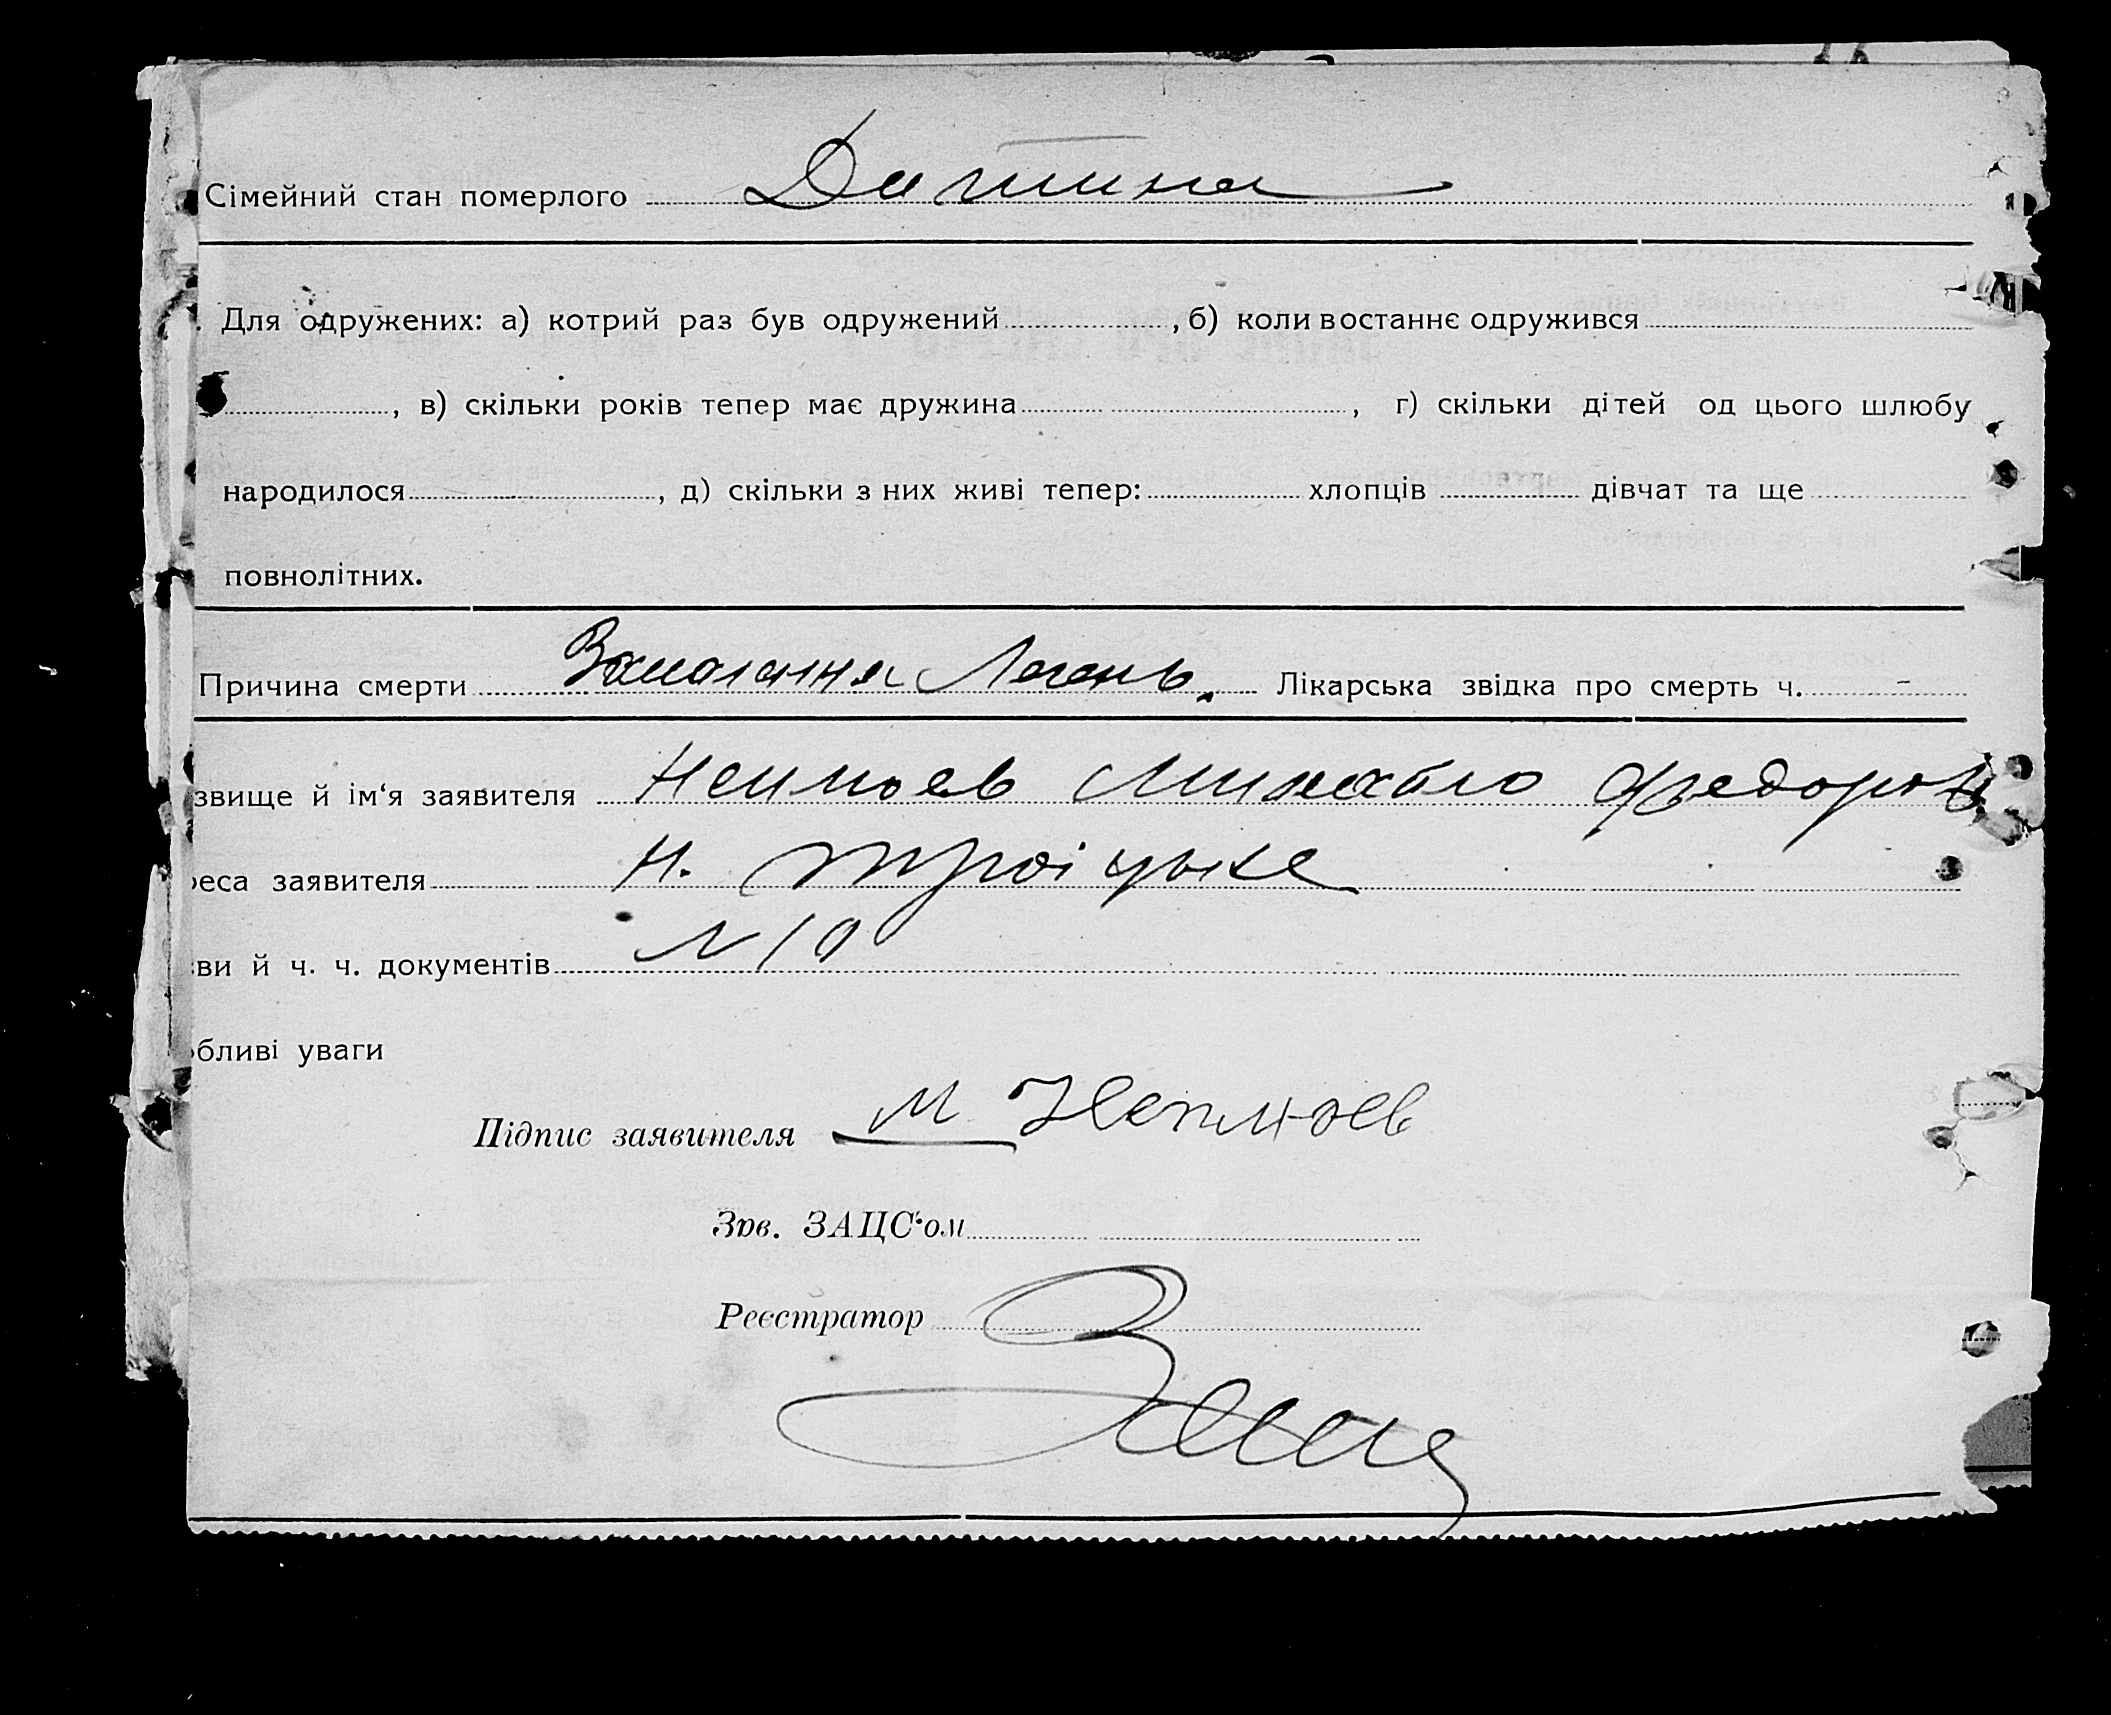 Сімейний стан померлого Дитина
Для одружених: а) котрий раз був одружений , б) коли востаннє одружився
, в) скільки років тепер має дружина , г) скільки дітей од цього шлюбу
народилося , д) скільки з них живі тепер: хлопців дівчат та ще
повнолітних.
Причина смерти Запалення Легень. Лікарська звідка про смерть ч. -
звище й ім'я заявителя Неплюєв Михайло Федоров
реса заявителя Н. Троіцьке
зви й ч. ч. документів № 10
обливі уваги
Підпис заявителя М Неплюев
Зав. ЗАЦС'ом
Реєстратор